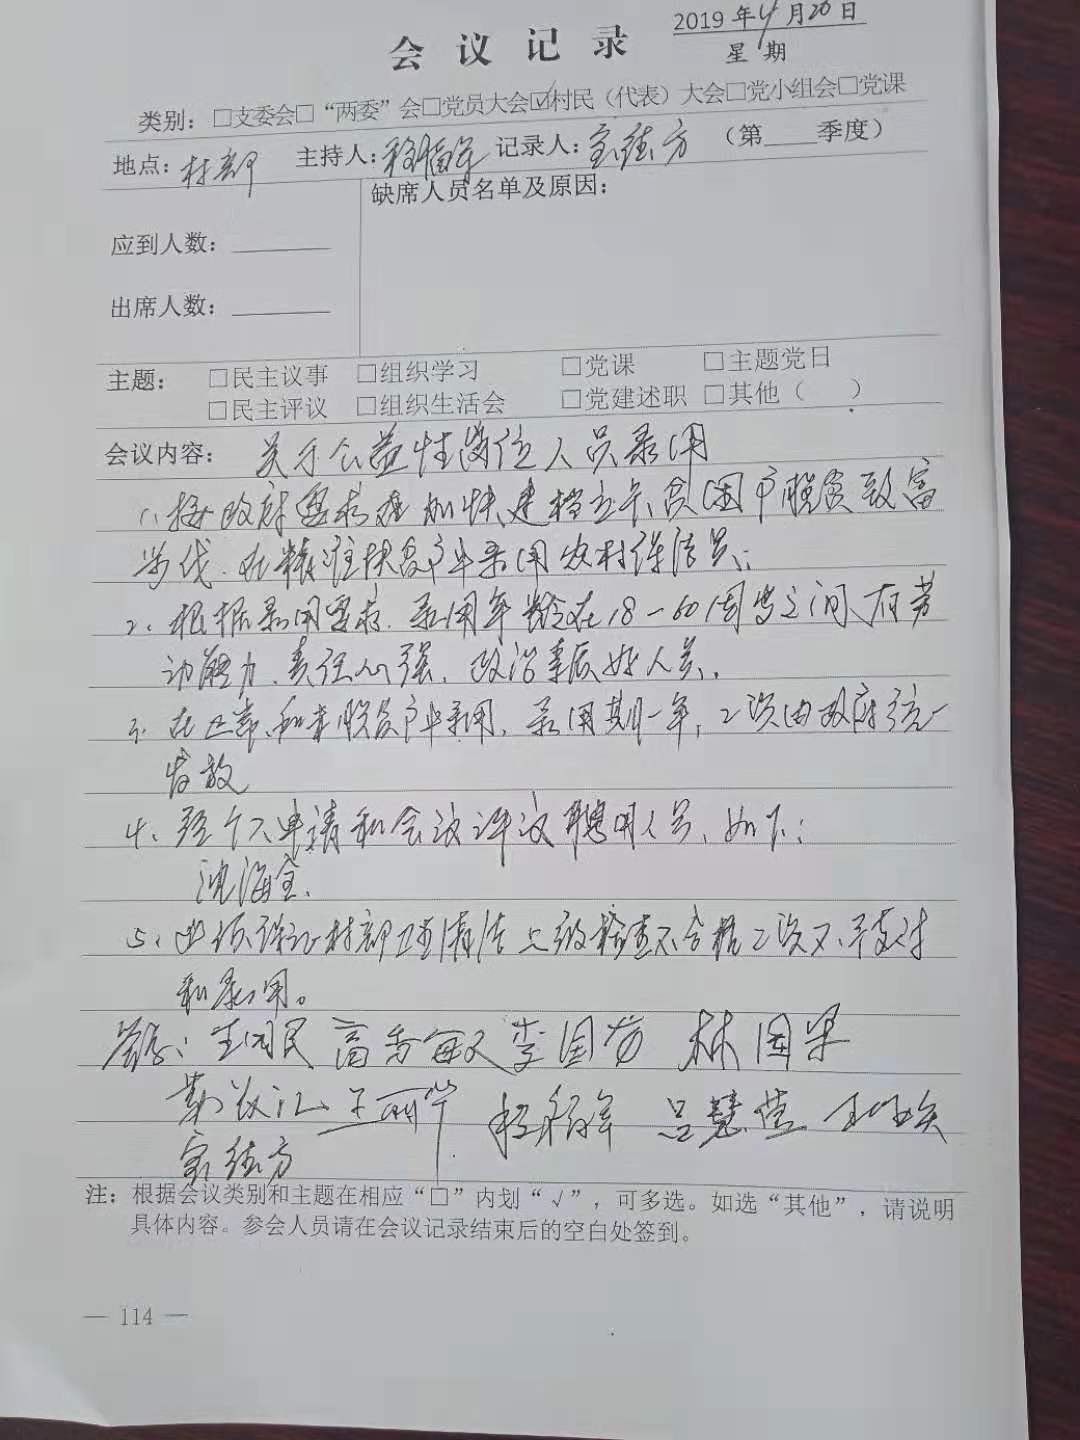 2019年4月20日
会议记录
星期
类别：□支委会□“两委”会□党员大会☑村民（代表）大会□党小组会□党课
地点：村部 主持人：程福军 记录人：德方 （第 季度）
缺席人员名单及原因：
应到人数：
出席人数：
主题： □民主议事 □组织学习 □党课 □主题党日
□民主评议 □组织生活会 □党建述职 □其他（ ）
会议内容： 关于公益性岗位人员录用
1、按政府要求加快建档立卡贫困户脱贫致富
步伐、在精准扶贫户中录用农村保洁员；
2、根据录用要求、录用年龄在18-60周岁之间、有劳
动能力、责任心强、政治素质好人员。
3、在正常和未脱贫户中录用，录用期一年，工资由政府统一
发放
4、经个人申请和会议评议聘用人员、如下：
沈海全、
5、必须保证村部卫生清洁上级检查不合格工资不予支付
和录用。
签字：王国民 高秀敏 李国芳 林国军
王丽华 程福军 吕慧莹
德方
注：根据会议类别和主题在相应“□”内划“√”，可多选。如选“其他”，请说明
具体内容。参会人员请在会议记录结束后的空白处签到。
— 114 —